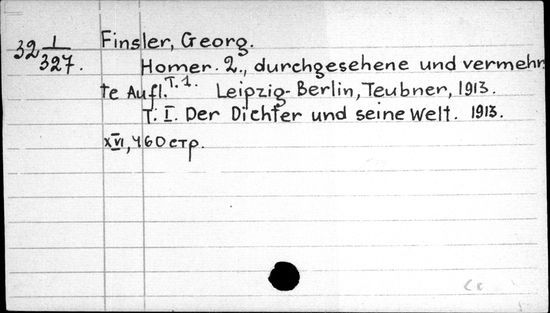 32 1/327.
Finsler, Georg.
Homer. 2., durchgesehene und vermehr
te Aufl. T. 1. Leipzig-Berlin, Teubner, 1913.
T. I. Der Dichter und seine Welt. 1913.
XVI, 460 стр.